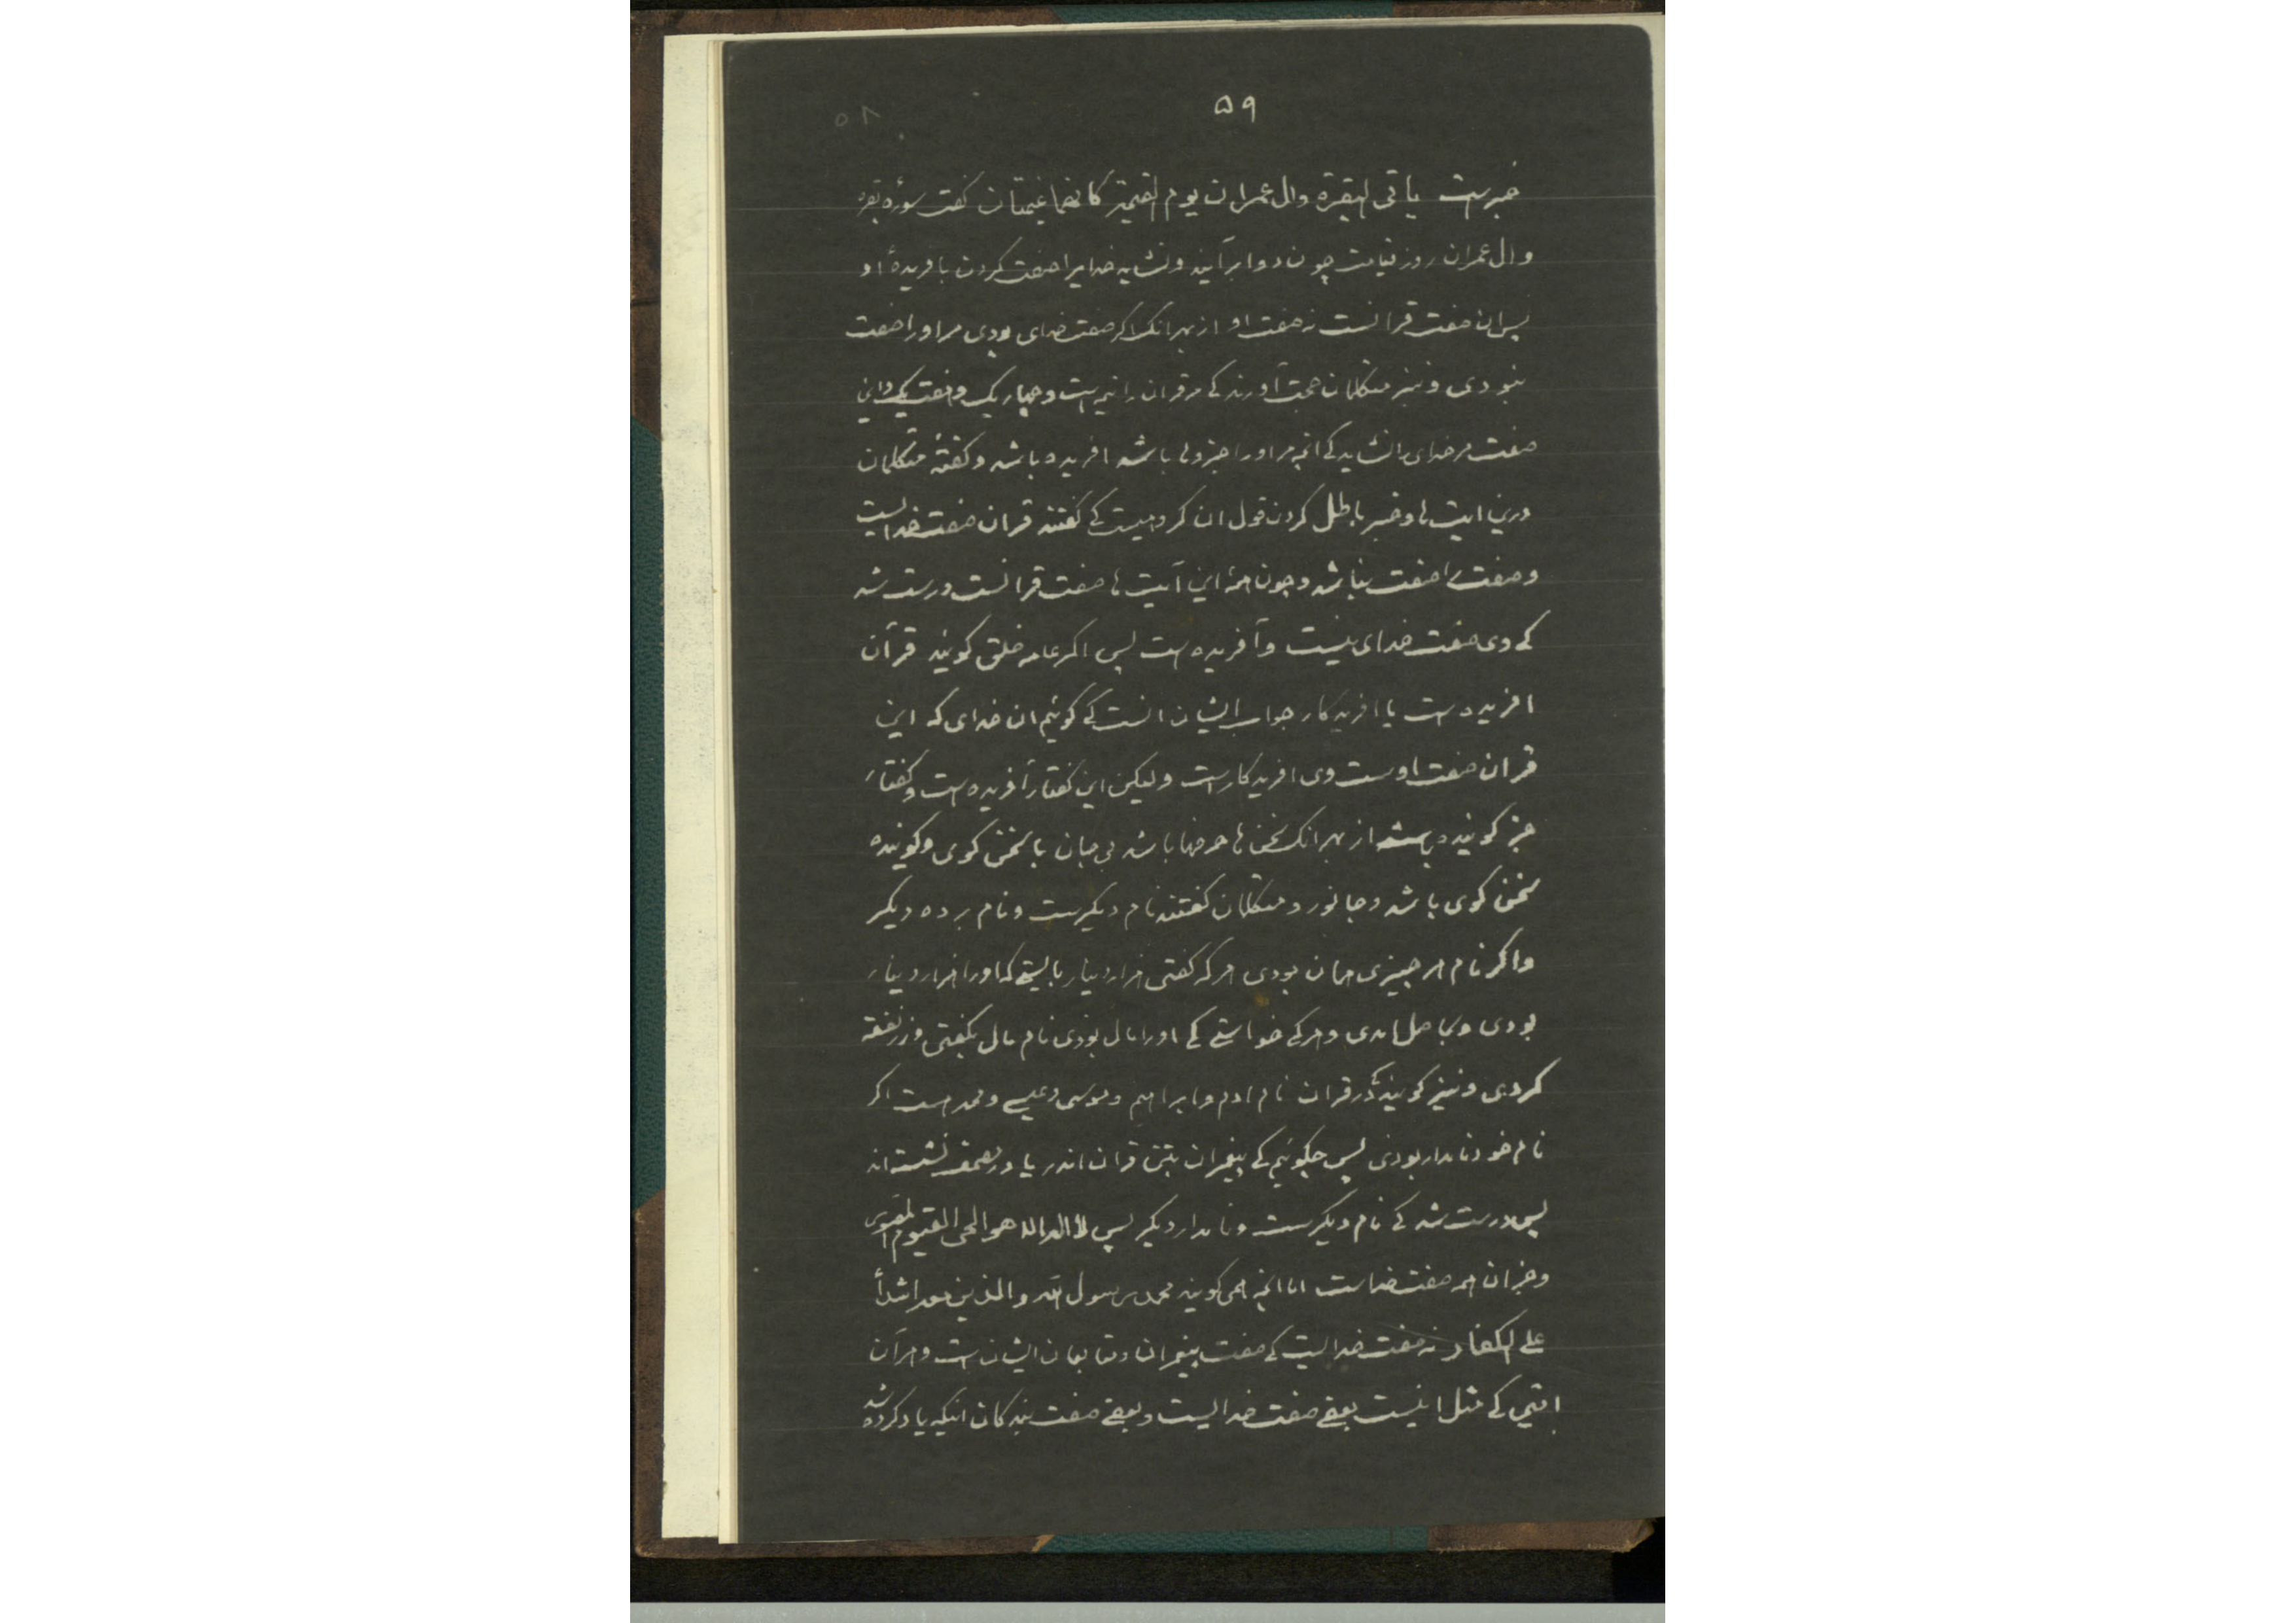 ۵۹
۵۸
خبرست یاتی البقرة وال عمران یوم القیمة کانهما غیمتان کفت سورۀ بقره
وال عمران روز قیامت چون دو ابر آیند ونشاید خدایرا صفت کردن بافریدۀ او
پس این صفت قرانست نه صفت او از بهر انک اکر صفت خدای بودی مر اورا صفت
نبودی ونیز متکلمان حجت آورند کی مر قران را نیمه است وچهاریک وهفت یک واین
صفت مر خدای را نشاید کی انچه مر اورا جزوی باشد افریده باشد وکفتۀ متکلمان
درین ایت ها وخبر باطل کردن قول ان کروهیست کی کفتند قران صفت خدایست
وصفت را صفت نباشد وچون همۀ این آیت ها صفت قرانست درست شد
کی وی صفت خدای نیست وآفریده است پس اکر عامه خلق کویند قرآن
افریدست یا افریدکار جواب ایشان انست کی کوئیم ان خدای که این
قران صفت اوست وی افریدکارست ولیکن این کفتار آفریده است وکفتار
جز کوینده باشد از بهر انک سخن ها عرضها باشد بی جان یا سخن کوی وکوینده
سخن کوی باشد وجانور ومتکلمان کفتند نام دیکرست ونام برده دیکر
واکر نام هر چیزی همان بودی هر که کفتی هزار دینار بایستی که اورا هزار دینار
بودی وبحاصل امدی وهر کی خواستی کی اورا مال بودی نام مال بکفتی وزر نفقه
کردی ونیز کویند کی در قران نام ادم وابراهیم وموسی وعیسی ومحمد است اکر
نام خود نامدار بودی پس چکوئیم کی پیغمبران بتن قران اندر یا در مصحف نشسته اند
پس درست شد کی نام دیکرست ونامدار دیکر پس لا اله الا هو الحی القیوم القوی
وجز ان همه صفت خداست اما انچه همی کویند محمد رسول الله والذین معه اشداء
علی الکفار نه صفت خدایست کی صفت پیغمبران ومتابعان ایشان است وهر آن
ایتی کی مثل اینست بعضی صفت خدایست وبعضی صفت بندکان انکه یاد کرده شد